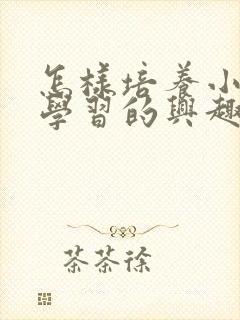 怎樣培養小
學習的興趣
茶茶徐